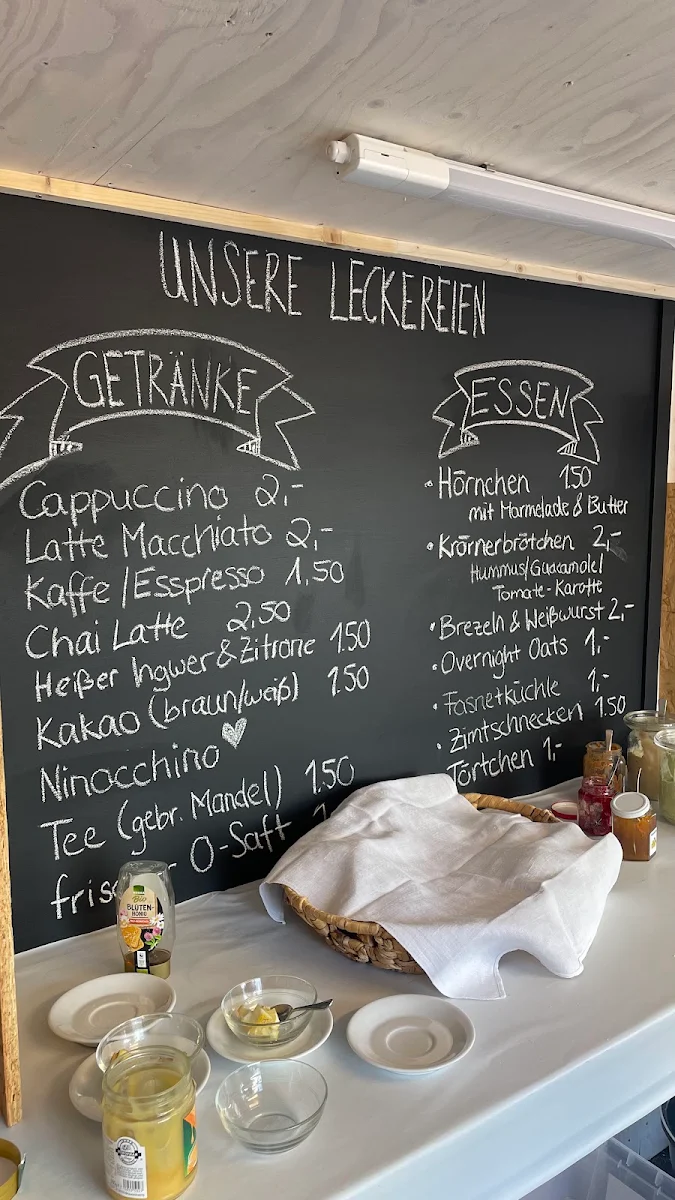 UNSERE LECKEREIEN
GETRÄNKE
Cappuccino 2,-
Latte Macchiato 2,-
Kaffe/Esspresso 1,50
Chai Latte 2,50
Heißer Ingwer & Zitrone 1.50
Kakao (braun/weiß) 1.50
Ninocchino
Tee (gebr. Mandel) 1.50
O-Saft
ESSEN
• Hörnchen 1.50
mit Marmelade & Butter
• Körnerbrötchen 2,-
Hummus/Guacamole/
Tomate-Karotte
• Brezeln & Weißwurst 2,-
• Overnight Oats 1,-
• Fasnetküchle 1,-
• Zimtschnecken 1.50
Törtchen 1,-
Bio
BLÜTEN-
HONIG